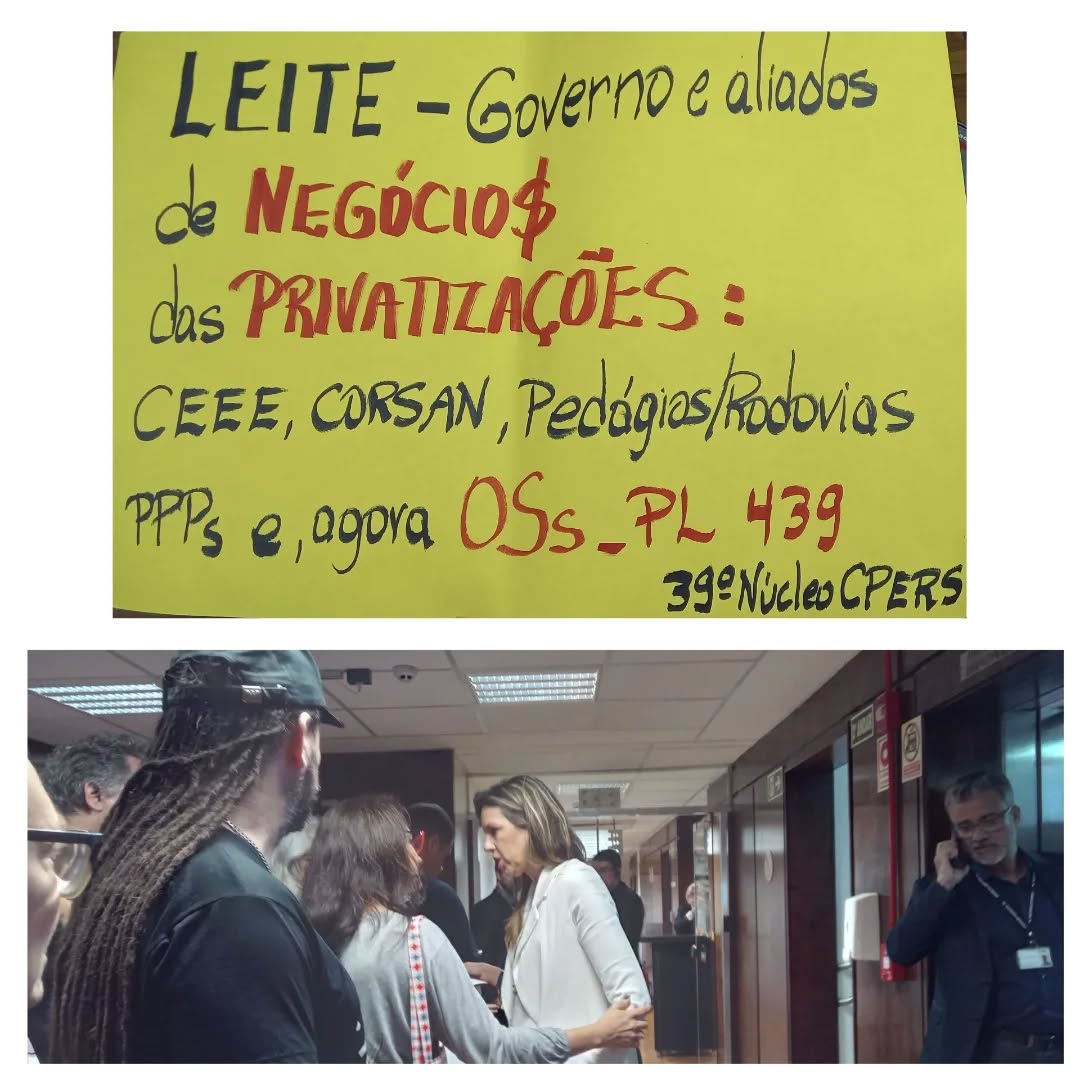 LEITE - Governo e aliados
de NEGÓCIO$
das PRIVATIZAÇÕES:
CEEE, CORSAN, Pedágios/Rodovias
PPPs e, agora OSs - PL 439
39º Núcleo CPERS